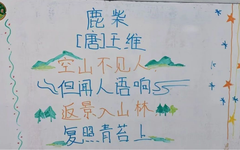 鹿柴
[唐]王维
空山不见人
但闻人语响
返景入山林
复照青苔上